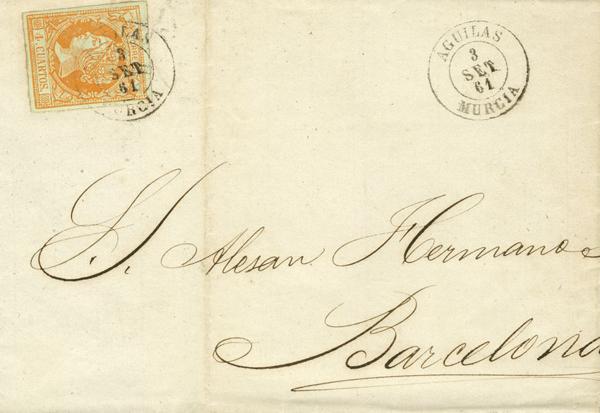 4 CUARTOS
3
SET
61
MURCIA
AGUILAS
3
SET
61
MURCIA
S. S. Alesan Hermanos
Barcelona